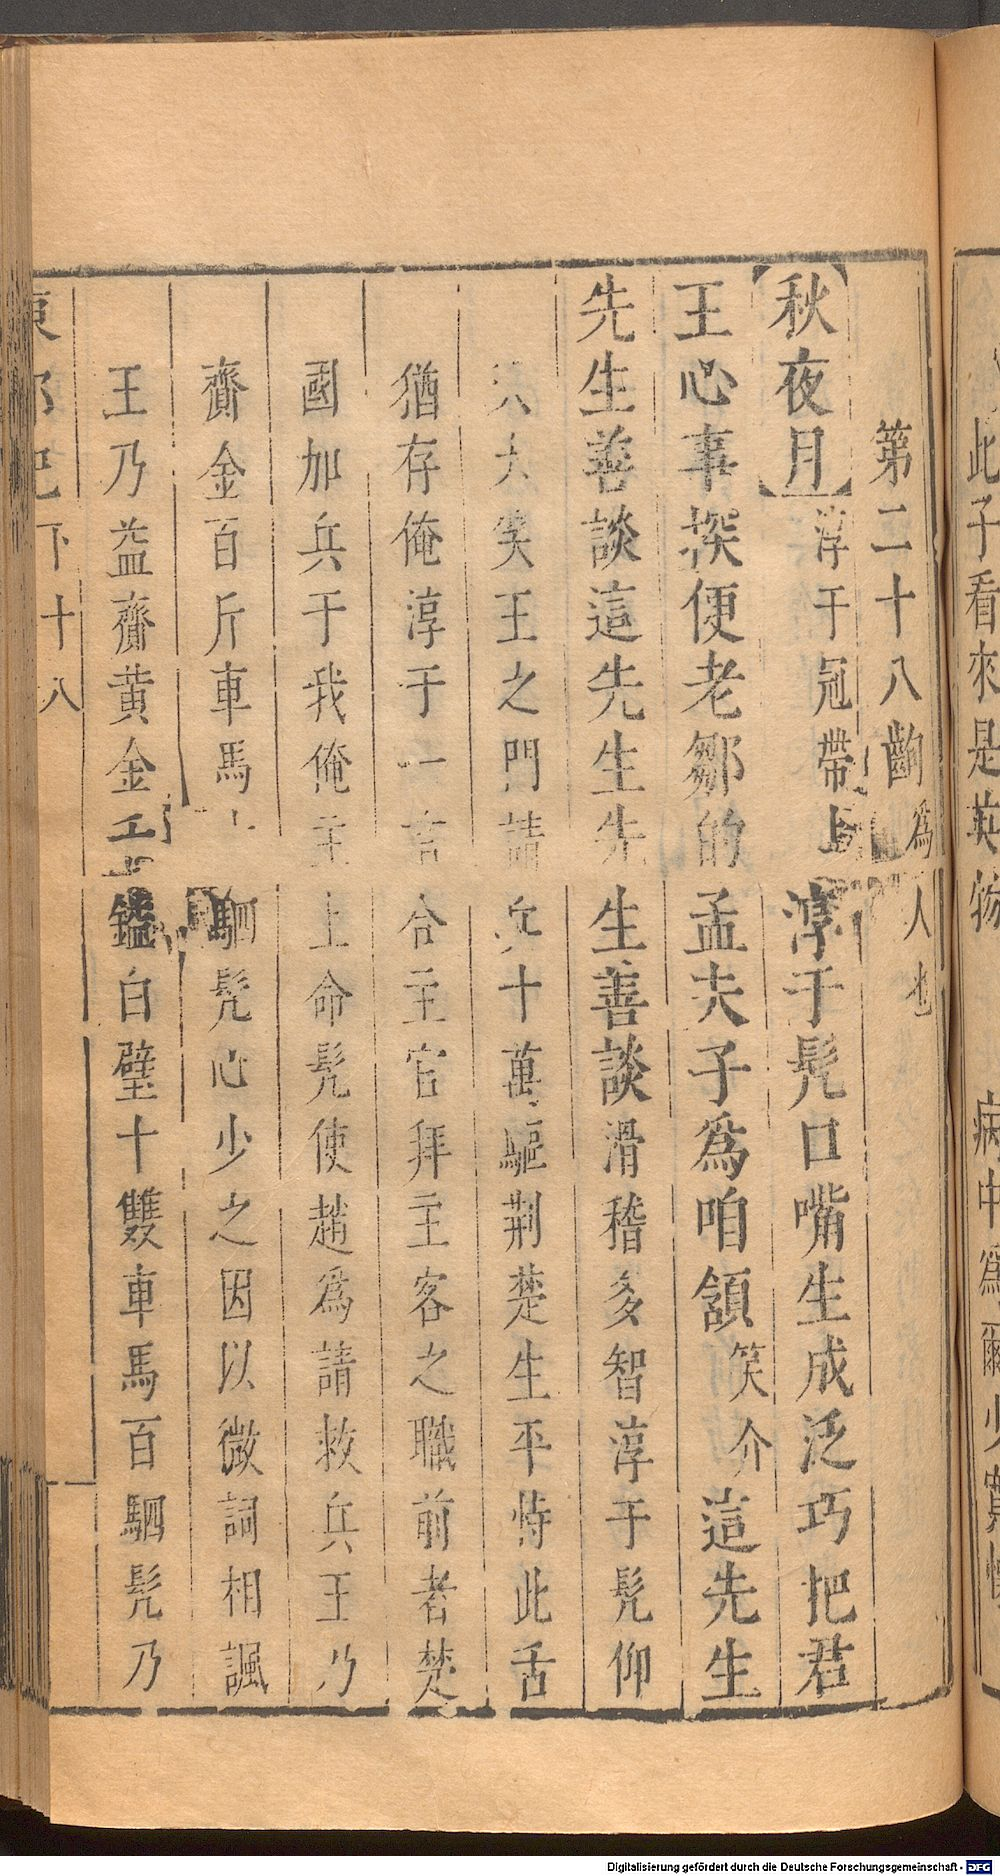 此子看來是英物　病中爲爾少
第二十八齣爲人也
【秋夜月】淳于冠帶上淳于髡口嘴生成泛巧把君
王心事探便老鄒的孟夫子爲咱頷笑介這先生
先生善談這先生先生善談滑稽多智淳于髡仰
天大笑王之門請兵十萬驅荆楚生平恃此舌
猶存俺淳于一言合主官拜主客之職前者楚
國加兵于我俺主上命髡使趙爲請救兵王乃
齎金百斤車馬十駟髡心少之因以微詞相諷
王乃益齎黄金千鎰白璧十雙車馬百駟髡乃
下十八
Digitalisierung gefördert durch die Deutsche Forschungsgemeinschaft - DFG